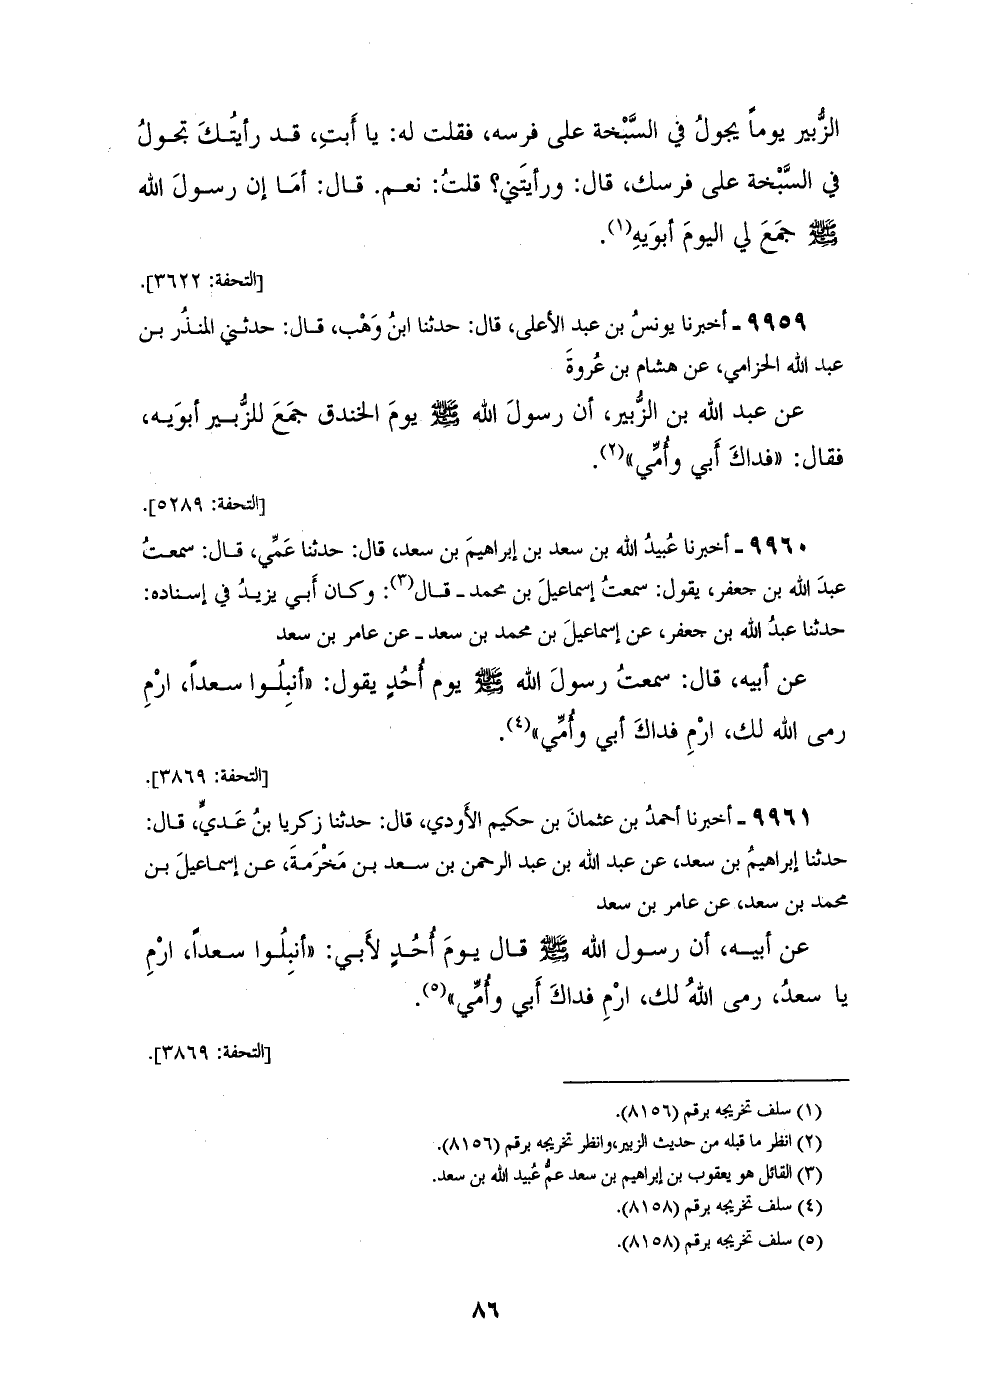 الزُّبير يوماً يجولُ في السَّبْخة على فرسه، فقلت له: يا أَبتِ، قد رأيتُكَ تجولُ
في السَّبْخة على فرسك، قال: ورأيتَني؟ قلتُ: نعم. قال: أمَا إن رسولَ الله
ﷺ جمَعَ لي اليومَ أبوَيهِ(١).
[التحفة: ٣٦٢٢].
٩٩٥٩ ـ أخبرنا يونسُ بن عبد الأعلى، قال: حدثنا ابنُ وَهْب، قال: حدثني المنذُر بن
عبد الله الحزامي، عن هشام بن عُروةَ
عن عبد الله بن الزُّبير، أن رسولَ الله ﷺ يومَ الخندق جمَعَ للزُّبير أبوَيه،
فقال: «فداكَ أَبي وأُمِّي»(٢).
[التحفة: ٥٢٨٩].
٩٩٦٠ ـ أخبرنا عُبيدُ الله بن سعد بن إبراهيمَ بن سعد، قال: حدثنا عَمِّي، قال: سمعتُ
عبدَ الله بن جعفر، يقول: سمعتُ إسماعيلَ بن محمد ـ قال(٣): وكان أَبي يزيدُ في إسناده:
حدثنا عبدُ الله بن جعفر، عن إسماعيلَ بن محمد بن سعد ـ عن عامر بن سعد
عن أبيه، قال: سمعتُ رسولَ الله ﷺ يوم أُحُدٍ يقول: «أنبِلُوا سعداً، ارْمِ
رمى الله لك، ارْمِ فداكَ أبي وأُمِّي»(٤).
[التحفة: ٣٨٦٩].
٩٩٦١ ـ أخبرنا أحمدُ بن عثمانَ بن حكيم الأَودي، قال: حدثنا زكريا بنُ عَديٍّ، قال:
حدثنا إبراهيمُ بن سعد، عن عبد الله بن عبد الرحمن بن سعد بن مَخْرَمةَ، عن إسماعيلَ بن
محمد بن سعد، عن عامر بن سعد
عن أبيه، أن رسول الله ﷺ قال يومَ أُحُدٍ لأَبي: «أنبِلُوا سعداً، ارْمِ
يا سعدُ، رمى اللهُ لك، ارمِ فداكَ أَبي وأُمِّي»(٥).
[التحفة: ٣٨٦٩].
(١) سلف تخريجه برقم (٨١٥٦).
(٢) انظر ما قبله من حديث الزبير،وانظر تخريجه برقم (٨١٥٦).
(٣) القائل هو يعقوب بن إبراهيم بن سعد عمُّ عُبيد الله بن سعد.
(٤) سلف تخريجه برقم (٨١٥٨).
(٥) سلف تخريجه برقم (٨١٥٨).
٨٦